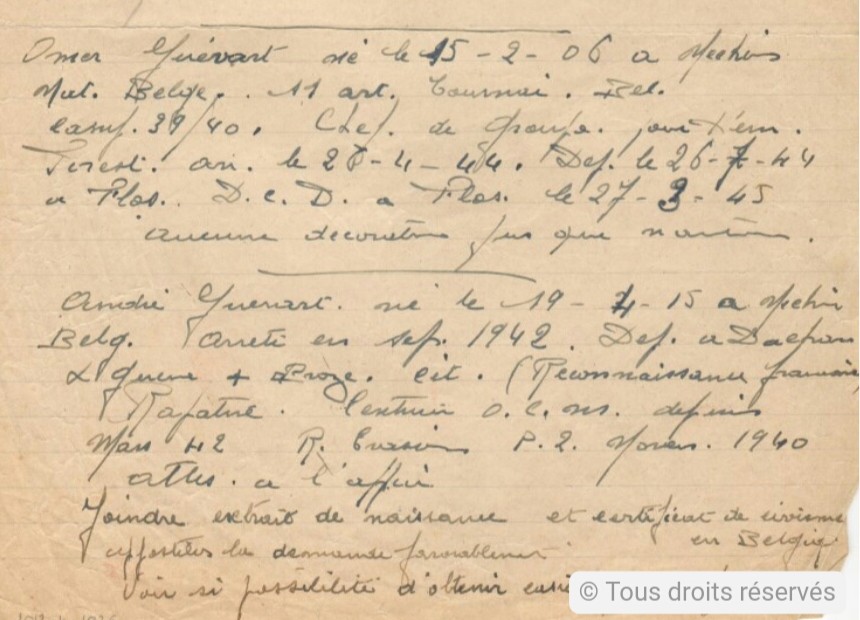 Omer Guévart né le 15-2-06 a Mechins
Nat. Belge. . 11 art. Tournai. Bel.
camp. 39/40. Chef. de Groupe.
Forest. arr. le 28-4-44. Dep. le 26-7-44
a Flos. D.C.D. a Flos. le 27-3-45
aucune decoration
André Guevart. né le 19-4-15 a Mechin
Belg. Arreté en sep. 1942. Dep. a Dachau
X guerre + Bronze. cit. (Reconnaissance française
Rapatrié. O.C.M. depuis
Mars 42 R. Evasion P.2. 1940
attes. a l'appui
Joindre extrait de naissance et certificat de civisme
en Belgique
la demande favorablement.
Voir si possibilité d'obtenir
© Tous droits réservés